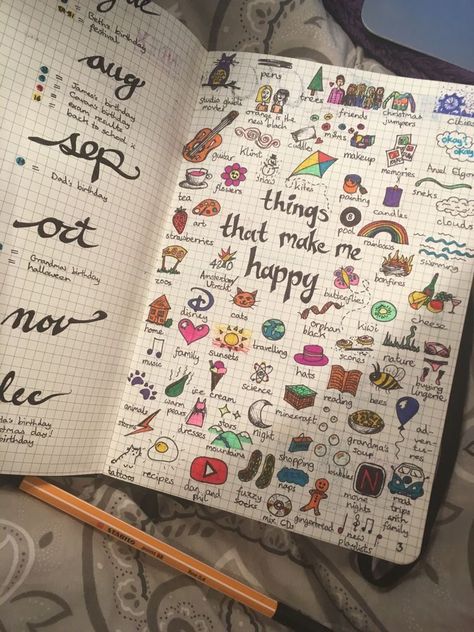 aug
= Beth's birthday
festival
= James's birthday
= Gemma's birthday
= exam results
= back to school :(
sep
= Dad's birthday
oct
= Grandma birthday
= halloween
nov
birthday
birthday
things
that make me
happy
studio ghibli
movies
pens
orange is the
new black
trees
friends
christmas
jumpers
cities
guitar
Klimt
snow
cuddles
mums
makeup
memories
okay?
okay.
hazel + gus
tea
flowers
kites
painting
candles
sneks
clouds
strawberries
art
pool
rainbows
swimming
zoos
4210
Amsterdam
butterflies
bonfires
cheese
home
disney
cats
travelling
orphan
black
kiwi
nature
buying
lingerie
music
family
sunsets
hats
scones
ice cream
science
minecraft
reading
bees
ad-
ven-
tu-
res
animals
dresses
stars
night
grandma's
soup
storms
mountains
shopping
bubbles
tattoos
recipes
dan and
phil
fuzzy
socks
naps
mix CDs
gingerbread
N
movie
nights
new
playlists
road
trips
with
family
3
STABILO